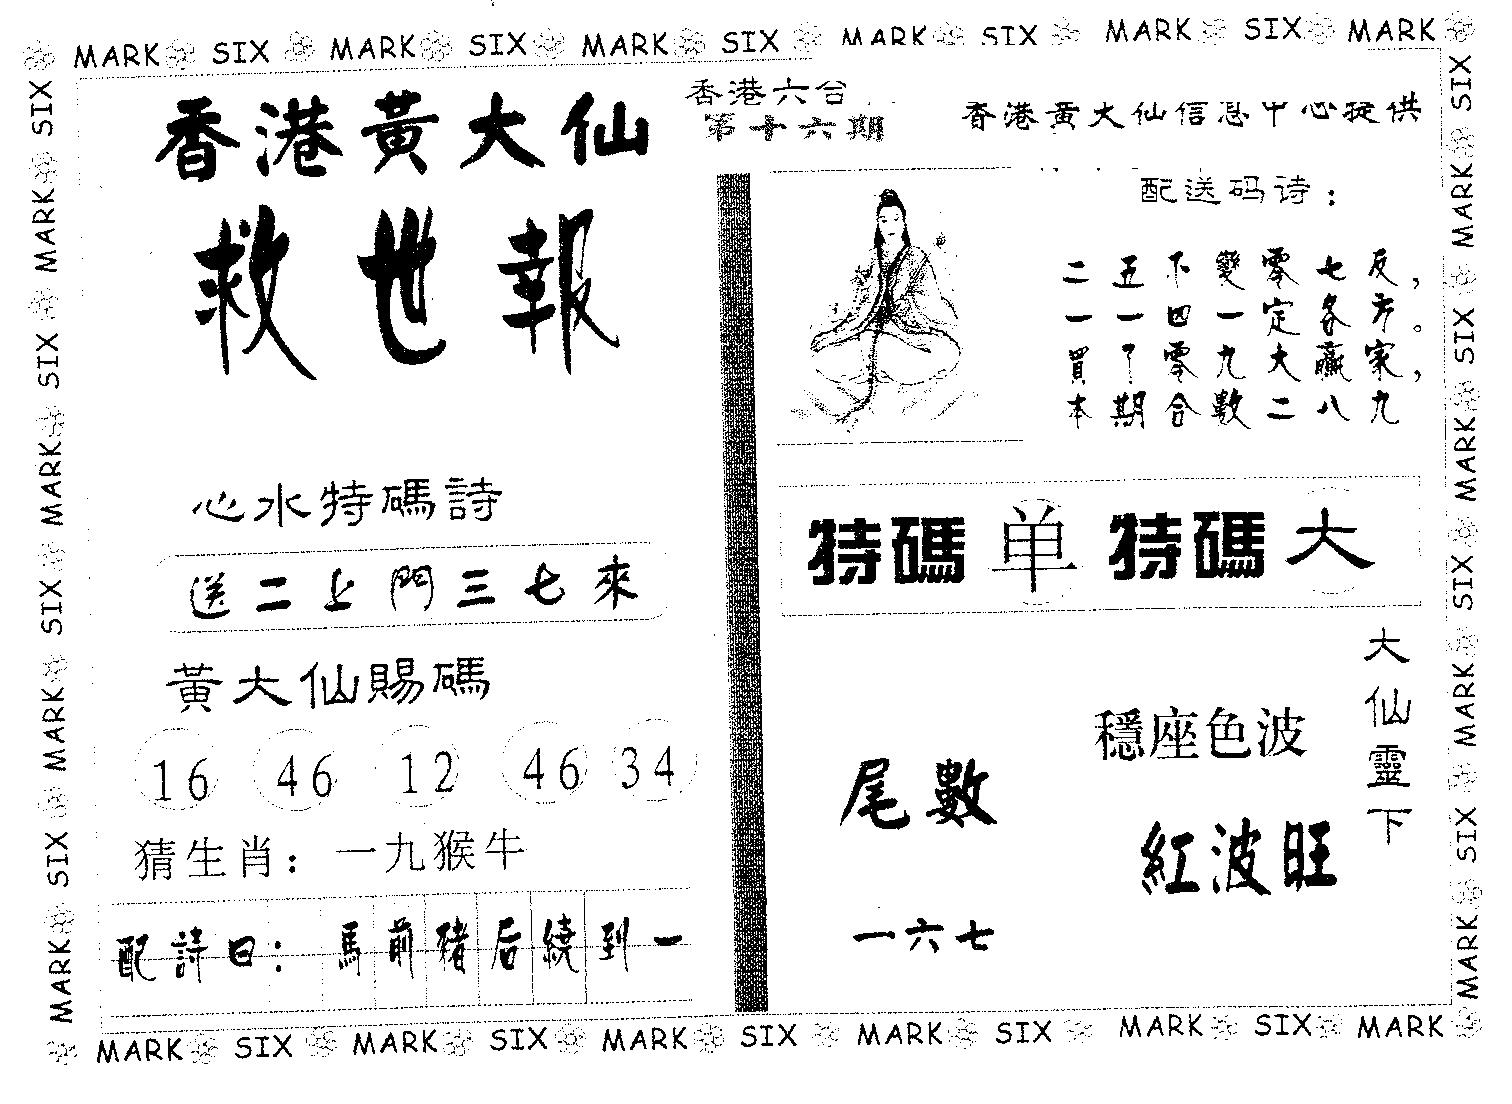 MARK SIX MARK SIX MARK SIX MARK SIX MARK SIX MARK
香港黃大仙
救世報
香港六合
第十六期
香港黃大仙信息中心提供
配送码诗：
二五下變零七反，
一一四一定各方。
買了零九大贏家，
本期合數二八九
心水特碼詩
送二上門三七來
黃大仙賜碼
16 46 12 46 34
猜生肖：一九猴牛
配詩曰：馬前豬后繞到一
特碼 单 特碼 大
大仙靈下
穩座色波
紅波旺
尾數
一六七
MARK SIX MARK SIX MARK SIX MARK SIX MARK SIX MARK
SIX MARK SIX MARK SIX MARK SIX MARK
SIX MARK SIX MARK SIX MARK SIX MARK